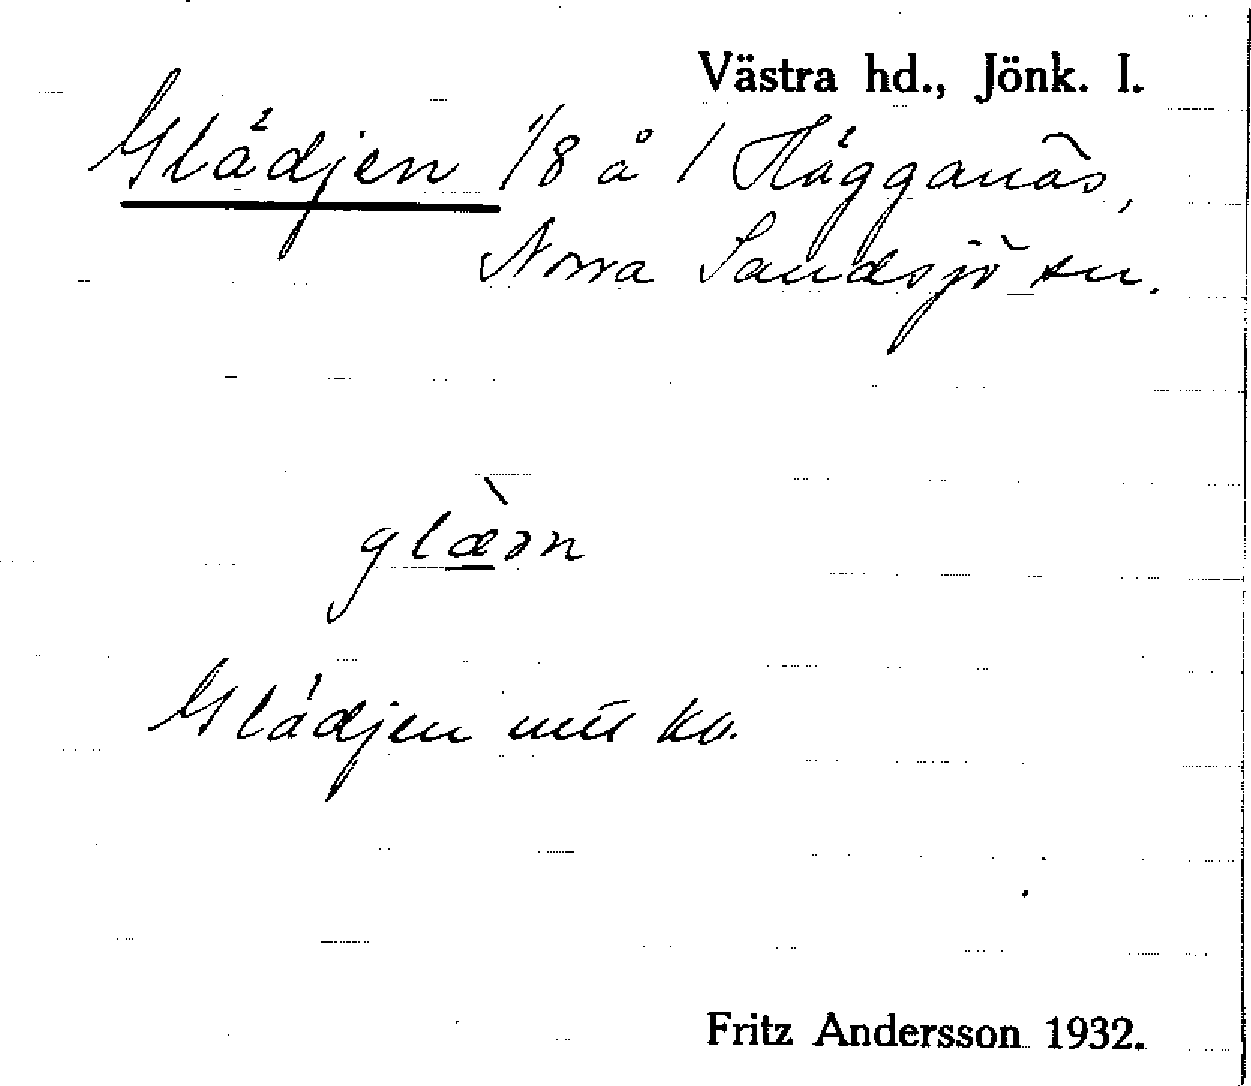 Västra hd., Jönk. l.
Glädjen 1/8 å 1 Hägganäs,
Norra Sandsjö sn.
glæ̀ən
Glädjen mtl kb.
Fritz Andersson 1932.